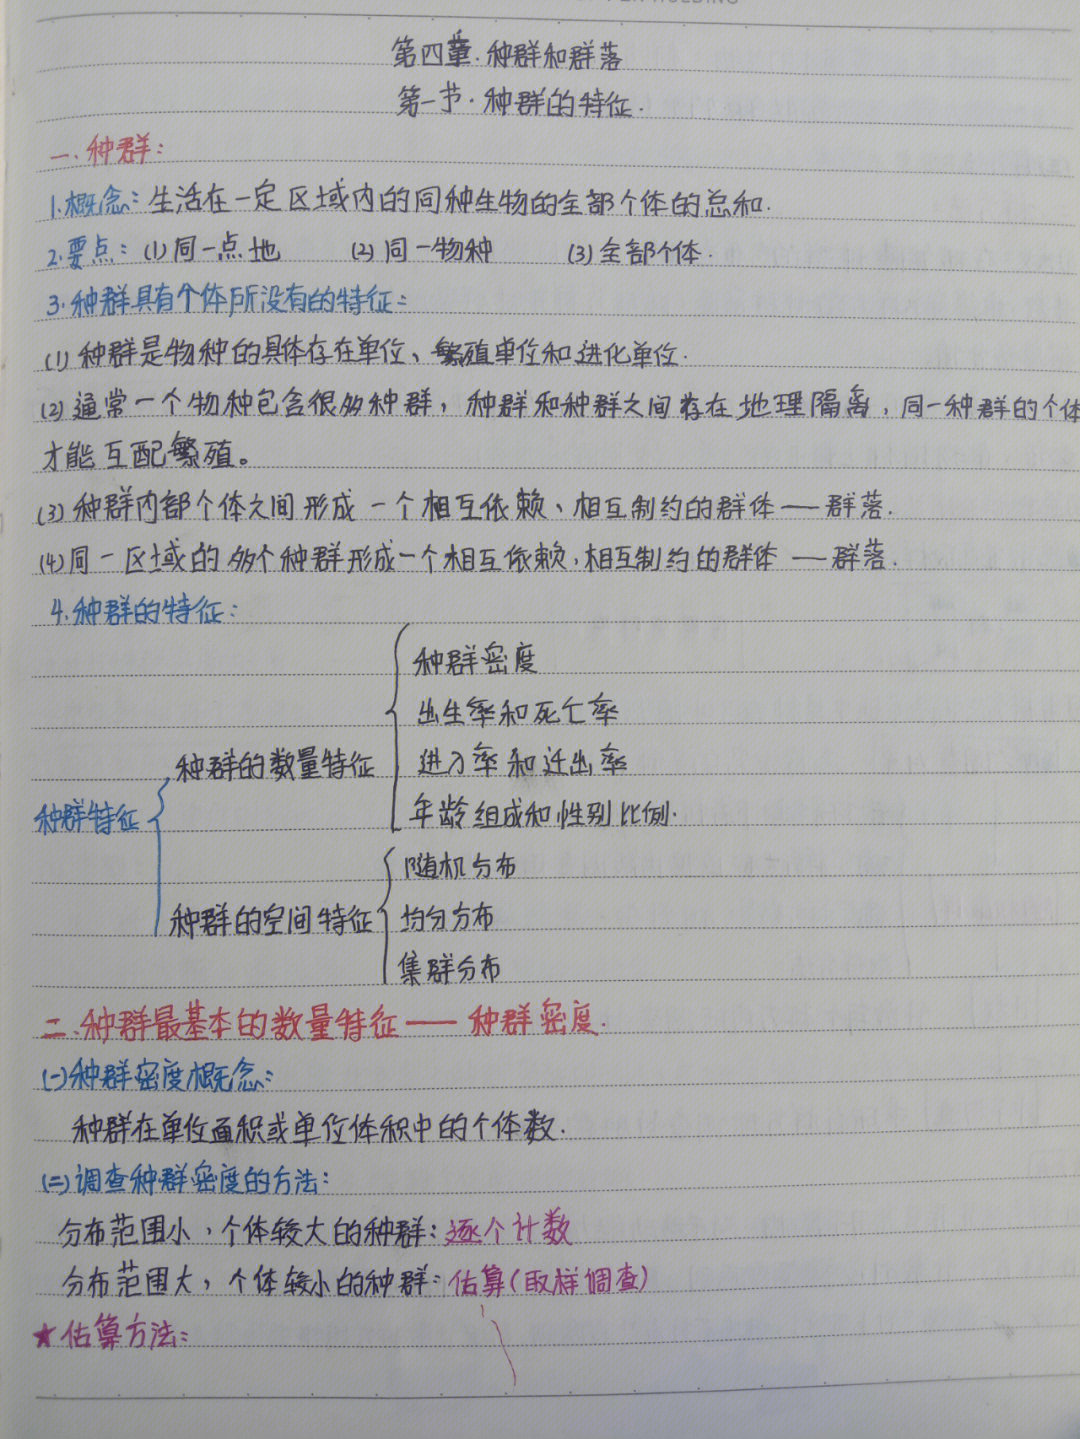 第四章.种群和群落
第一节.种群的特征.
一.种群:
1.概念:生活在一定区域内的同种生物的全部个体的总和.
2.要点:(1)同一点地 (2)同一物种 (3)全部个体.
3.种群具有个体所没有的特征:
(1)种群是物种的具体存在单位、繁殖单位和进化单位.
(2)通常一个物种包含很多种群,种群和种群之间存在地理隔离,同一种群的个体
才能互配繁殖。
(3)种群内部个体之间形成一个相互依赖、相互制约的群体——群落.
(4)同一区域的多个种群形成一个相互依赖,相互制约的群体——群落.
4.种群的特征:
种群密度
出生率和死亡率
种群的数量特征
进入率和迁出率
种群特征
年龄组成和性别比例.
随机分布
种群的空间特征
均匀分布
集群分布
二.种群最基本的数量特征——种群密度.
(一)种群密度概念:
种群在单位面积或单位体积中的个体数.
(二)调查种群密度的方法:
分布范围小,个体较大的种群:逐个计数
分布范围大,个体较小的种群:估算(取样调查)
★估算方法: